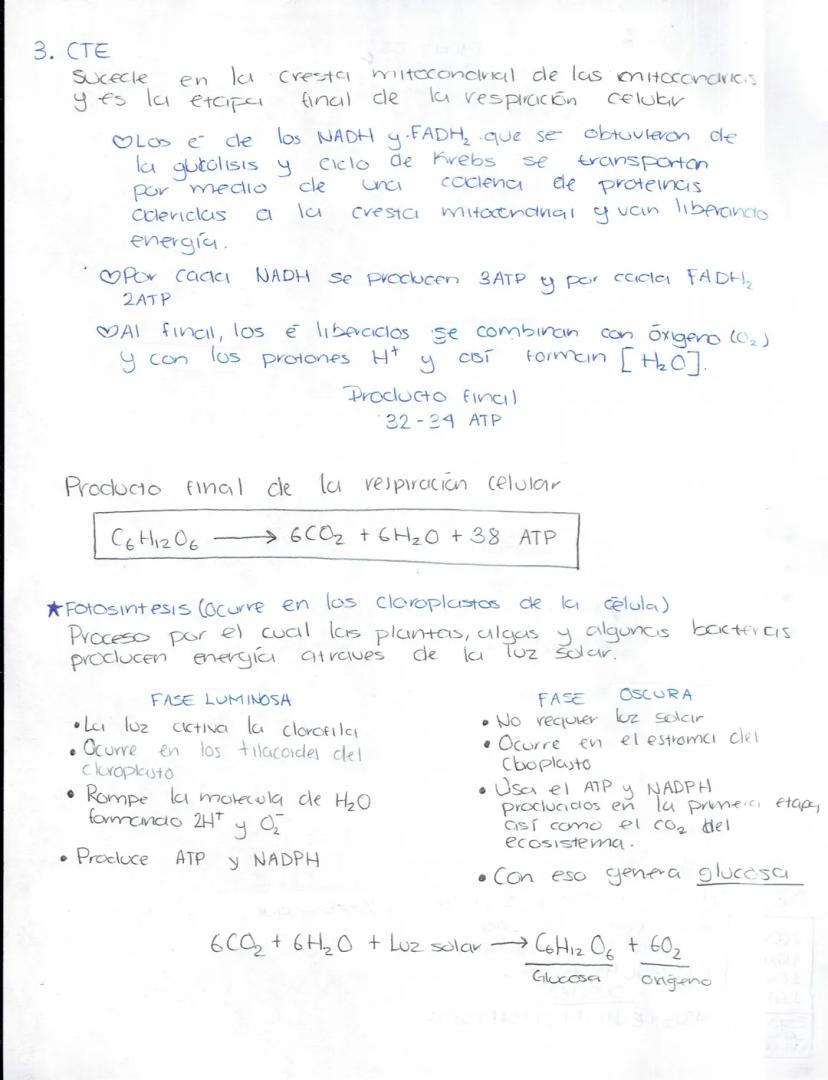 3. CTE
Sucede en la cresta mitocondrial de las mitocondrias
y es la etapa final de la respiración celular
♡Los e⁻ de los NADH y FADH₂ que se obtuvieron de
la glucolisis y ciclo de Krebs se transportan
por medio de una cadena de proteínas
aderidas a la cresta mitocondrial y van liberando
energía.
♡Por cada NADH se producen 3ATP y por cada FADH₂
2ATP
♡Al final, los e⁻ liberados se combinan con óxigeno (O₂)
y con los protones H⁺ y así forman [H₂O].
Producto final
32-34 ATP
Producto final de la respiración celular
C₆H₁₂O₆ ⟶ 6CO₂ + 6H₂O + 38 ATP
★Fotosíntesis (Ocurre en los cloroplastos de la célula)
Proceso por el cual las plantas, algas y algunas bacterias
producen energía atraves de la luz solar.
FASE LUMINOSA
• La luz activa la clorofila
• Ocurre en los tilacoides del
cloroplasto
• Rompe la molecula de H₂O
formando 2H⁺ y O₂⁻
• Produce ATP y NADPH
FASE OSCURA
• No requier luz solar
• Ocurre en el estroma del
cloroplasto
• Usa el ATP y NADPH
producidos en la primera etapa,
así como el CO₂ del
ecosistema.
• Con eso genera glucosa
6CO₂ + 6H₂O + Luz solar ⟶ C₆H₁₂O₆ + 6O₂
Glucosa oxígeno